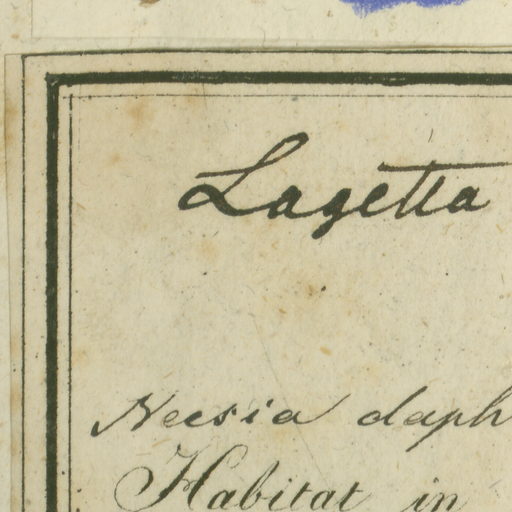 Lagetta
Neesia daph
Habitat in